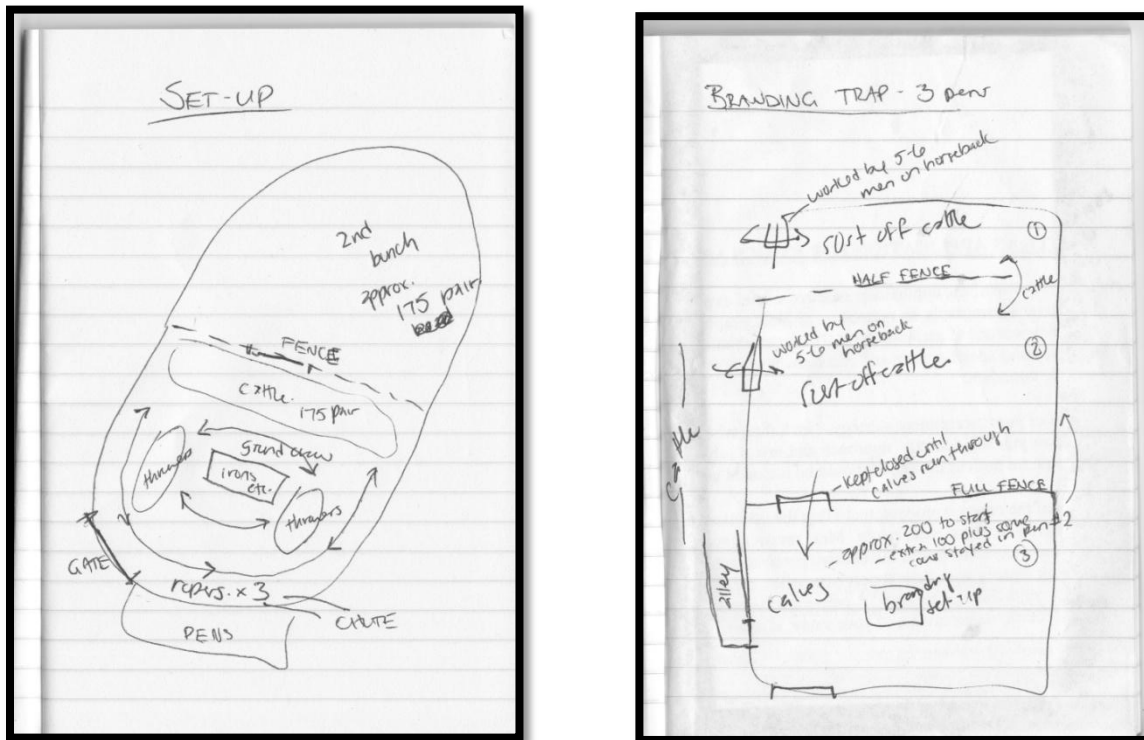 SET-UP
2nd
bunch
approx.
175 pair
FENCE
cattle.
175 pair
throwers
ground crew
irons
etc.
throwers
GATE
ropers. x 3
CHUTE
PENS
BRANDING TRAP - 3 pens
worked by 5-6
men on horseback
sort off cattle
1
HALF FENCE
cattle
worked by
5-6 men on
horseback
2
sort off cattle.
cattle
- kept closed until
calves run through
FULL FENCE
- approx. 200 to start
- extra 100 plus some
cows stayed in pen #2
3
alley
calves
branding
set-up